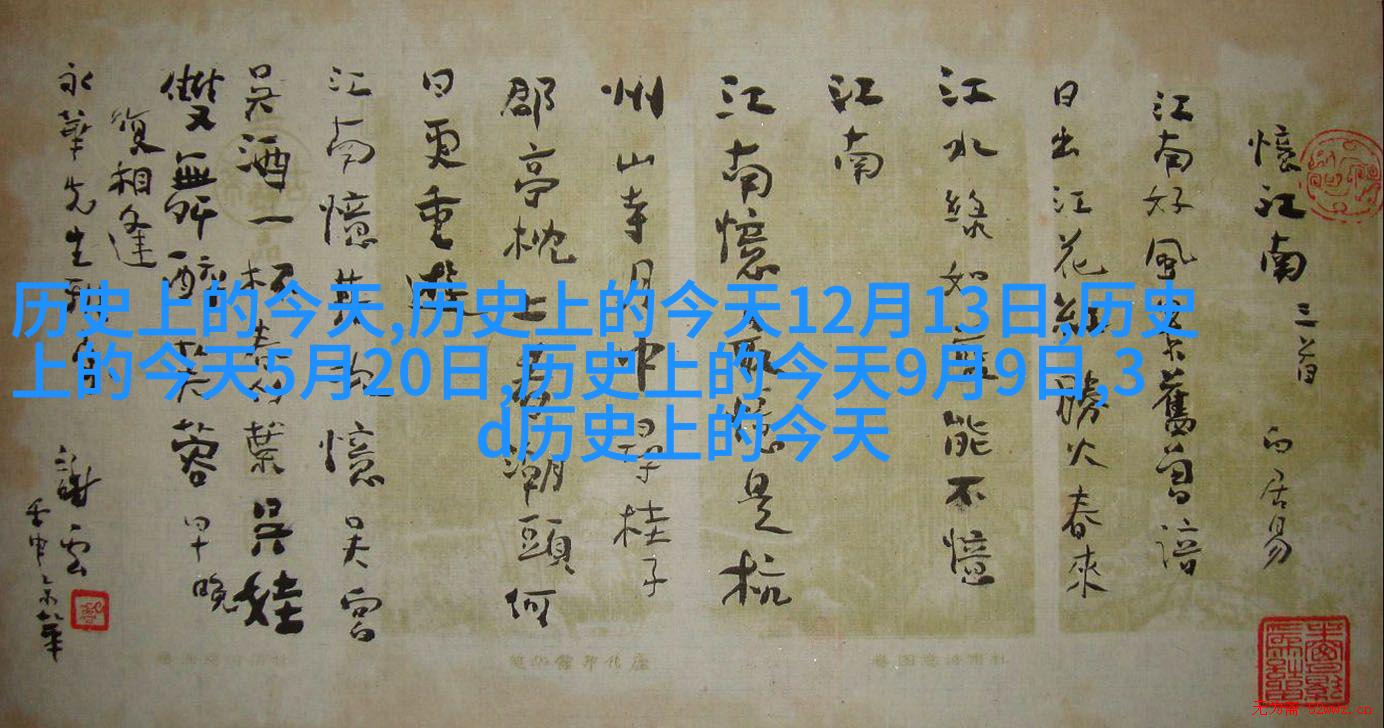 憶江南 三首 白居易
江南好風景舊曾諳
日出江花紅勝火春來
江水綠如藍能不憶
江南
江南憶最憶是杭
州山寺月中尋桂子
郡亭枕上看潮頭何
日更重遊
江南憶其次憶吳宮
吳酒一杯春竹葉吳娃
雙舞醉芙蓉早晚
復相逢
永華先生
謝雲
壬申京華
历史上的今天,历史上的今天12月13日,历史
上的今天5月20日,历史上的今天9月9日,3
d历史上的今天